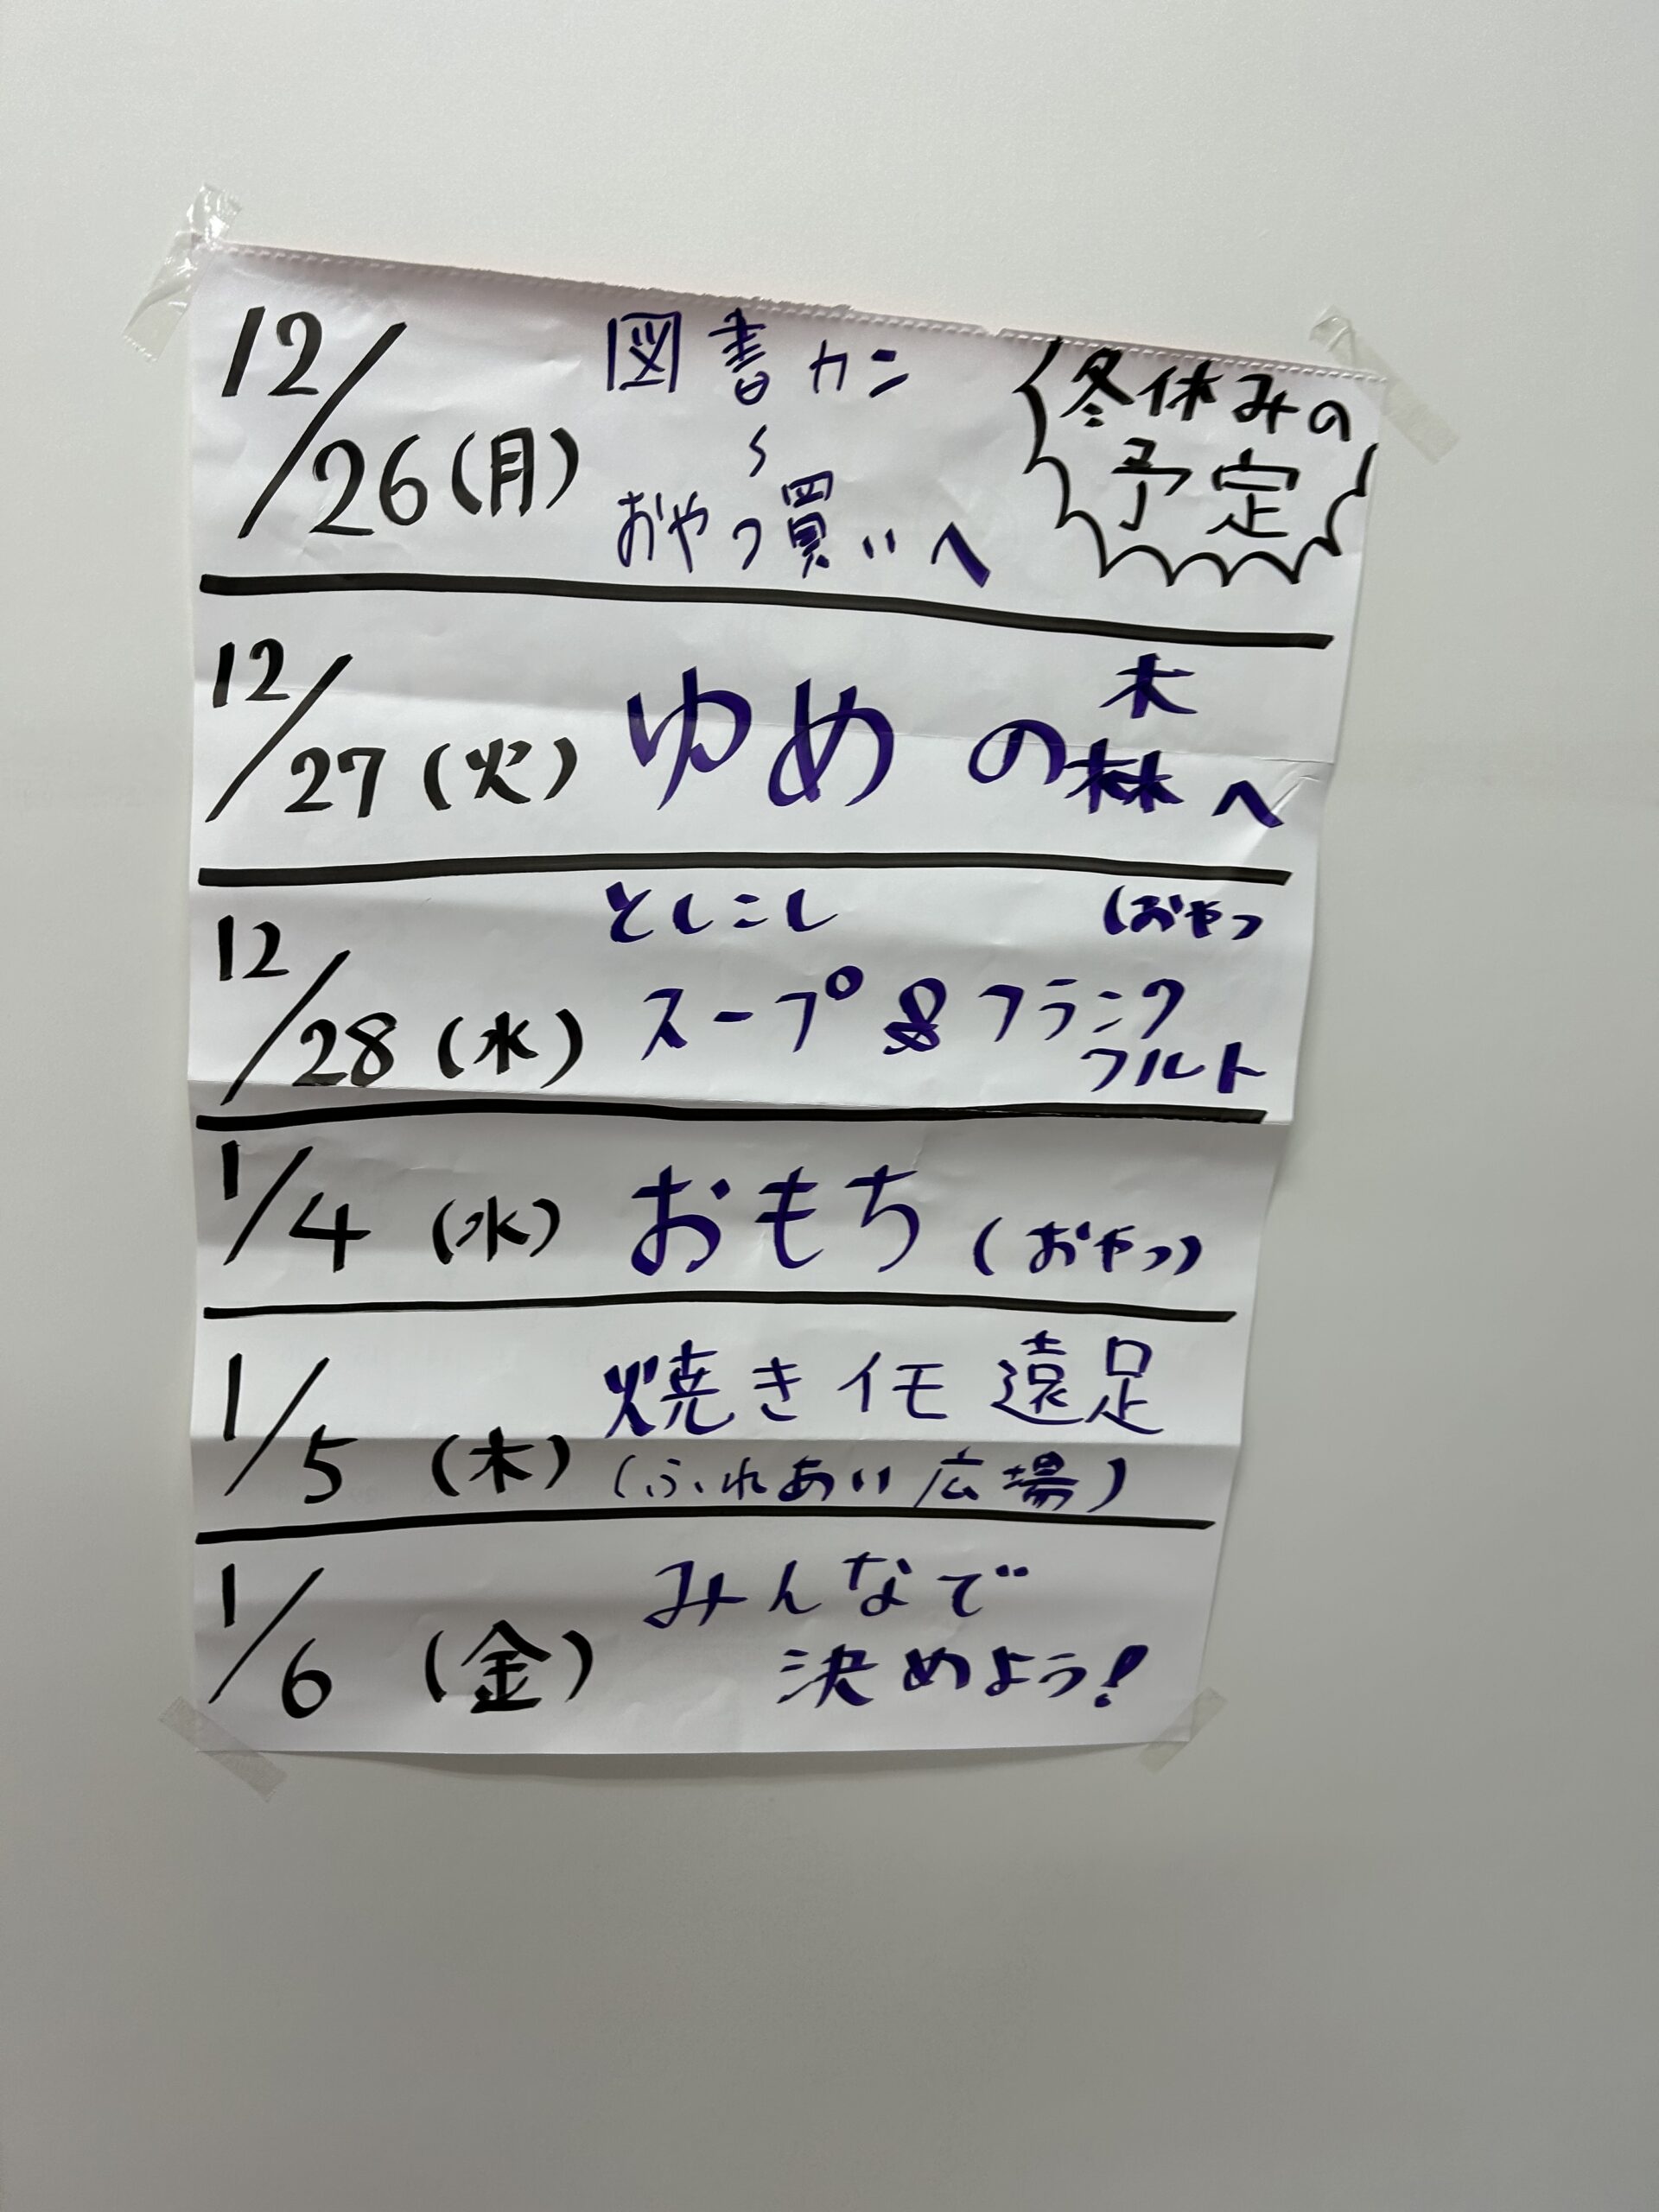 冬休みの
予定
12/26(月)
図書カン
〜
おやつ買いへ
12/27(火)
ゆめの森へ
12/28(水)
としこし
スープ&フランク
フルト
(おやつ
1/4(水)
おもち(おやつ)
1/5(木)
焼きイモ遠足
(ふれあい広場)
1/6(金)
みんなで
決めよう!